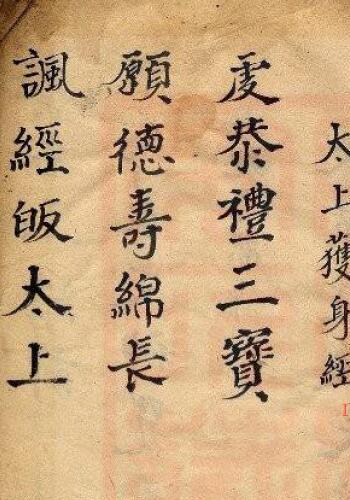 太上獲身經
虔恭禮三寶
願德壽綿長
諷經皈太上